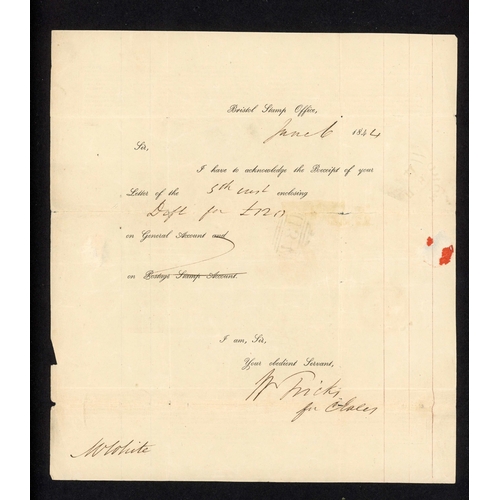 Bristol Stamp Office,
June 6 1844
Sir,
I have to acknowledge the Receipt of your
Letter of the 5th inst enclosing
Dft for £12
on General Account and
on Postage Stamp Account.
I am, Sir,
Your obedient Servant,
W Fricks
for
Mr White